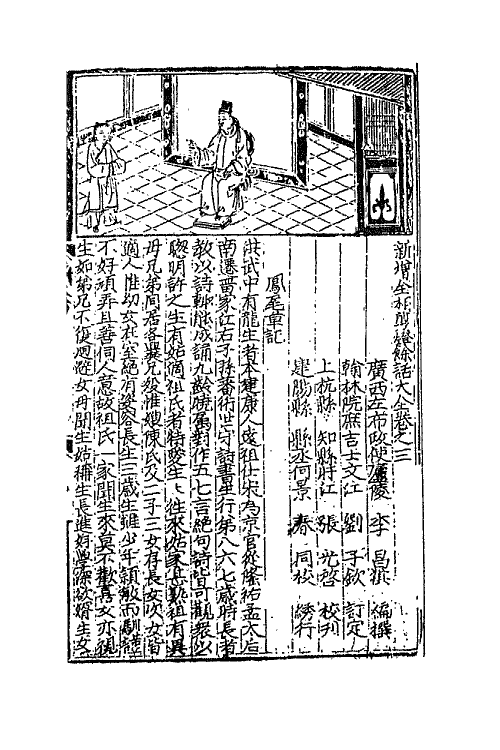 新增全相剪燈餘話大全卷之三
廣西左布政使廬陵 李 昌祺 編撰
翰林院庶吉士文江 劉 子欽 訂定
上杭縣 知縣盱江 張 光啓 校刊
建陽縣 縣丞何景 春 同校 綉行
鳳尾草記
洪武中有龍生者本建康人遠祖仕宋為京官從隆祐孟太后
南遷晋家江右子孫蕃衍世守詩書生行第八六七歲時長者
教以詩輒能成誦九齡
五七言絕句詩皆可觀衆以
聰明許之生有姑適祖氏者特愛生生往來姑家
祖有異
母兄弟同居各爨兄歿惟嫂陳氏及二子三女存長女次女皆
適人惟幼女在室絕有姿容長生三歲生雖少年穎敏而馴謹
不好頑弄且善伺人意故祖氏一家聞生來莫不歡喜女亦視
生如弟兄不復廻避女母聞生姑稱生長進好學深欲婿生女